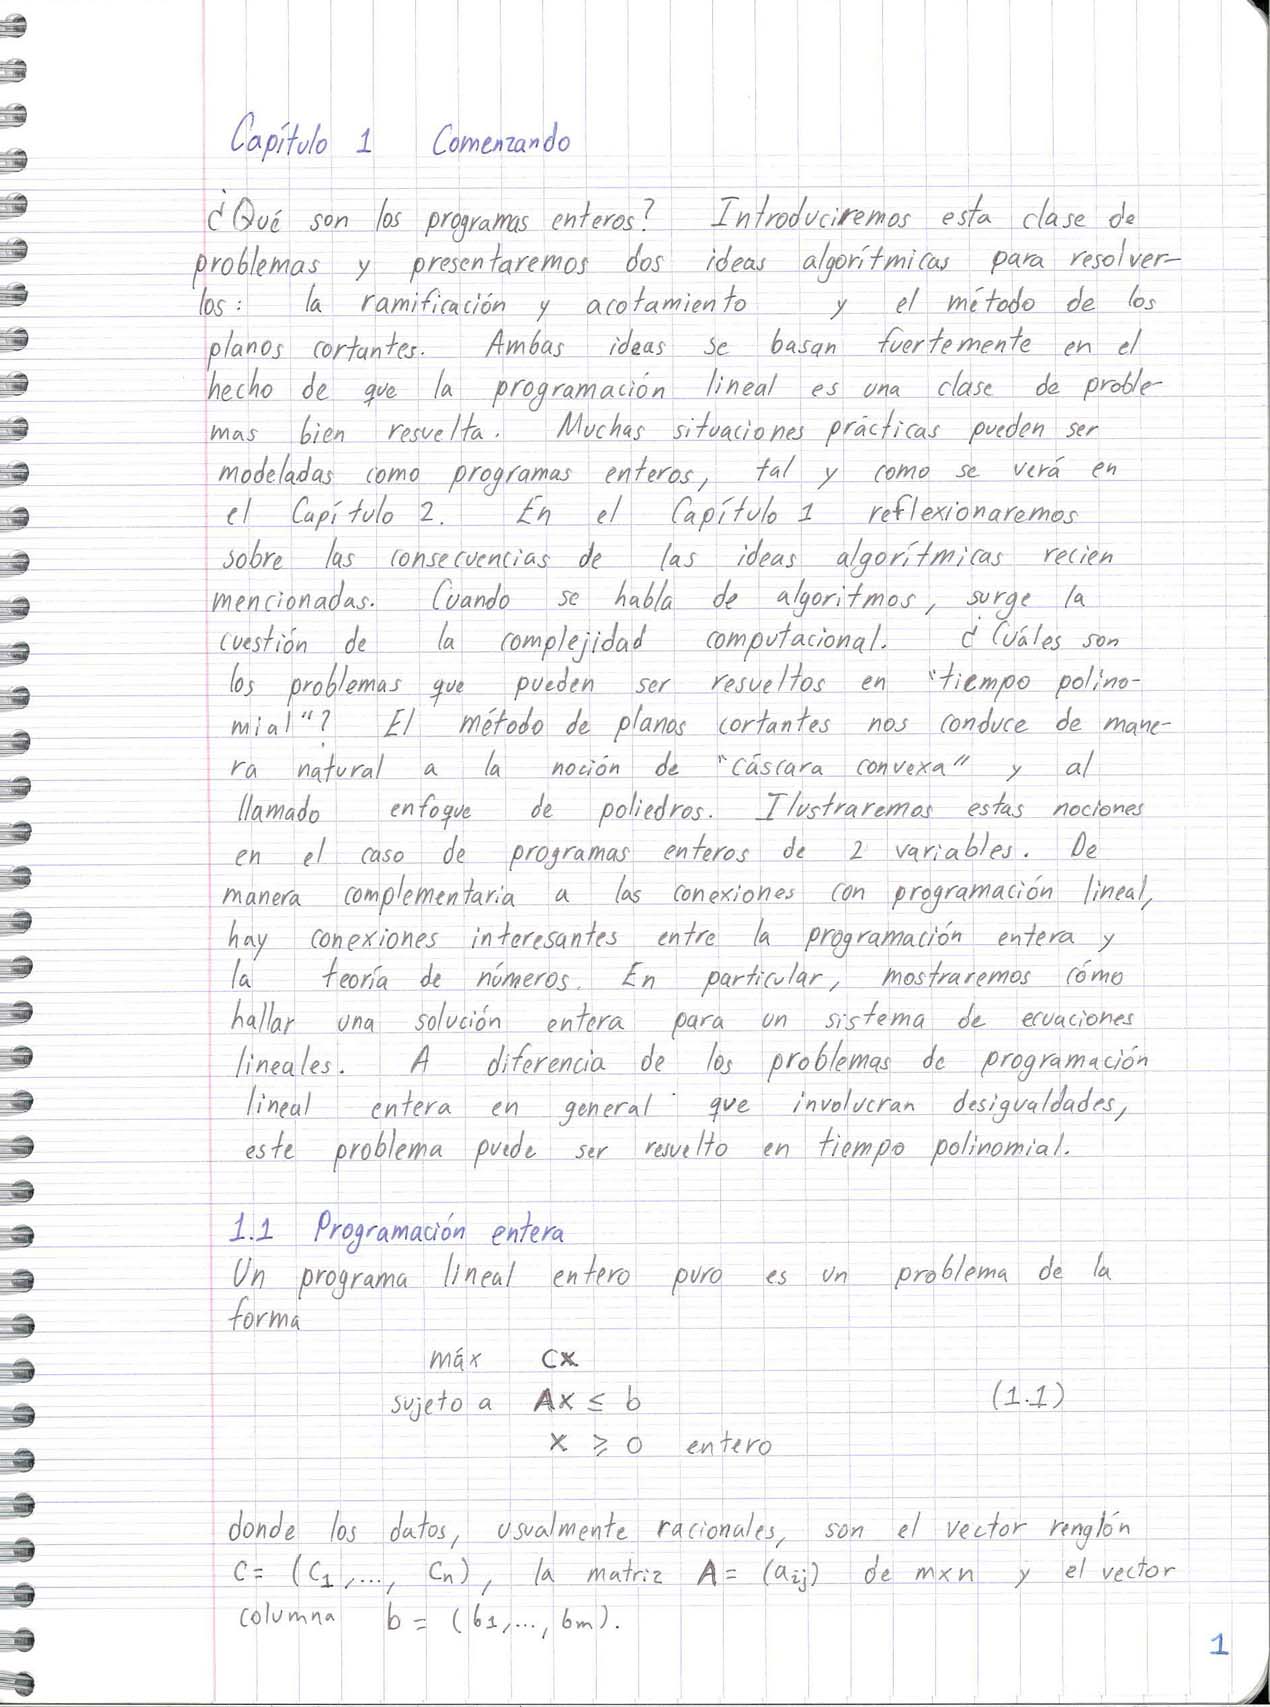 Capítulo 1 Comenzando
¿Qué son los programas enteros? Introduciremos esta clase de
problemas y presentaremos dos ideas algorítmicas para resolver-
los: la ramificación y acotamiento y el método de los
planos cortantes. Ambas ideas se basan fuertemente en el
hecho de que la programación lineal es una clase de proble-
mas bien resuelta. Muchas situaciones prácticas pueden ser
modeladas como programas enteros, tal y como se verá en
el Capítulo 2. En el Capítulo 1 reflexionaremos
sobre las consecuencias de las ideas algorítmicas recien
mencionadas. Cuando se habla de algoritmos, surge la
cuestión de la complejidad computacional. ¿Cuáles son
los problemas que pueden ser resueltos en "tiempo polino-
mial"? El método de planos cortantes nos conduce de mane-
ra natural a la noción de "cáscara convexa" y al
llamado enfoque de poliedros. Ilustraremos estas nociones
en el caso de programas enteros de 2 variables. De
manera complementaria a las conexiones con programación lineal,
hay conexiones interesantes entre la programación entera y
la teoría de números. En particular, mostraremos cómo
hallar una solución entera para un sistema de ecuaciones
lineales. A diferencia de los problemas de programación
lineal entera en general que involucran desigualdades,
este problema puede ser resuelto en tiempo polinomial.
1.1 Programación entera
Un programa lineal entero puro es un problema de la
forma
máx cx
sujeto a Ax ≤ b (1.1)
x ≥ 0 entero
donde los datos, usualmente racionales, son el vector renglón
c = (c1,..., cn), la matriz A = (aij) de m×n y el vector
columna b = (b1,..., bm).
1